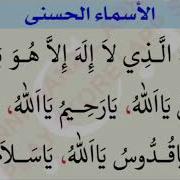 الأسماء الحسنى
الَّذِي لاَ إِلَهَ إِلاَّ هُوَ
يَااَللهُ، يَارَحِيمُ يَااَللهُ،
يَاقُدُّوسُ يَااَللهُ، يَاسَلاَ